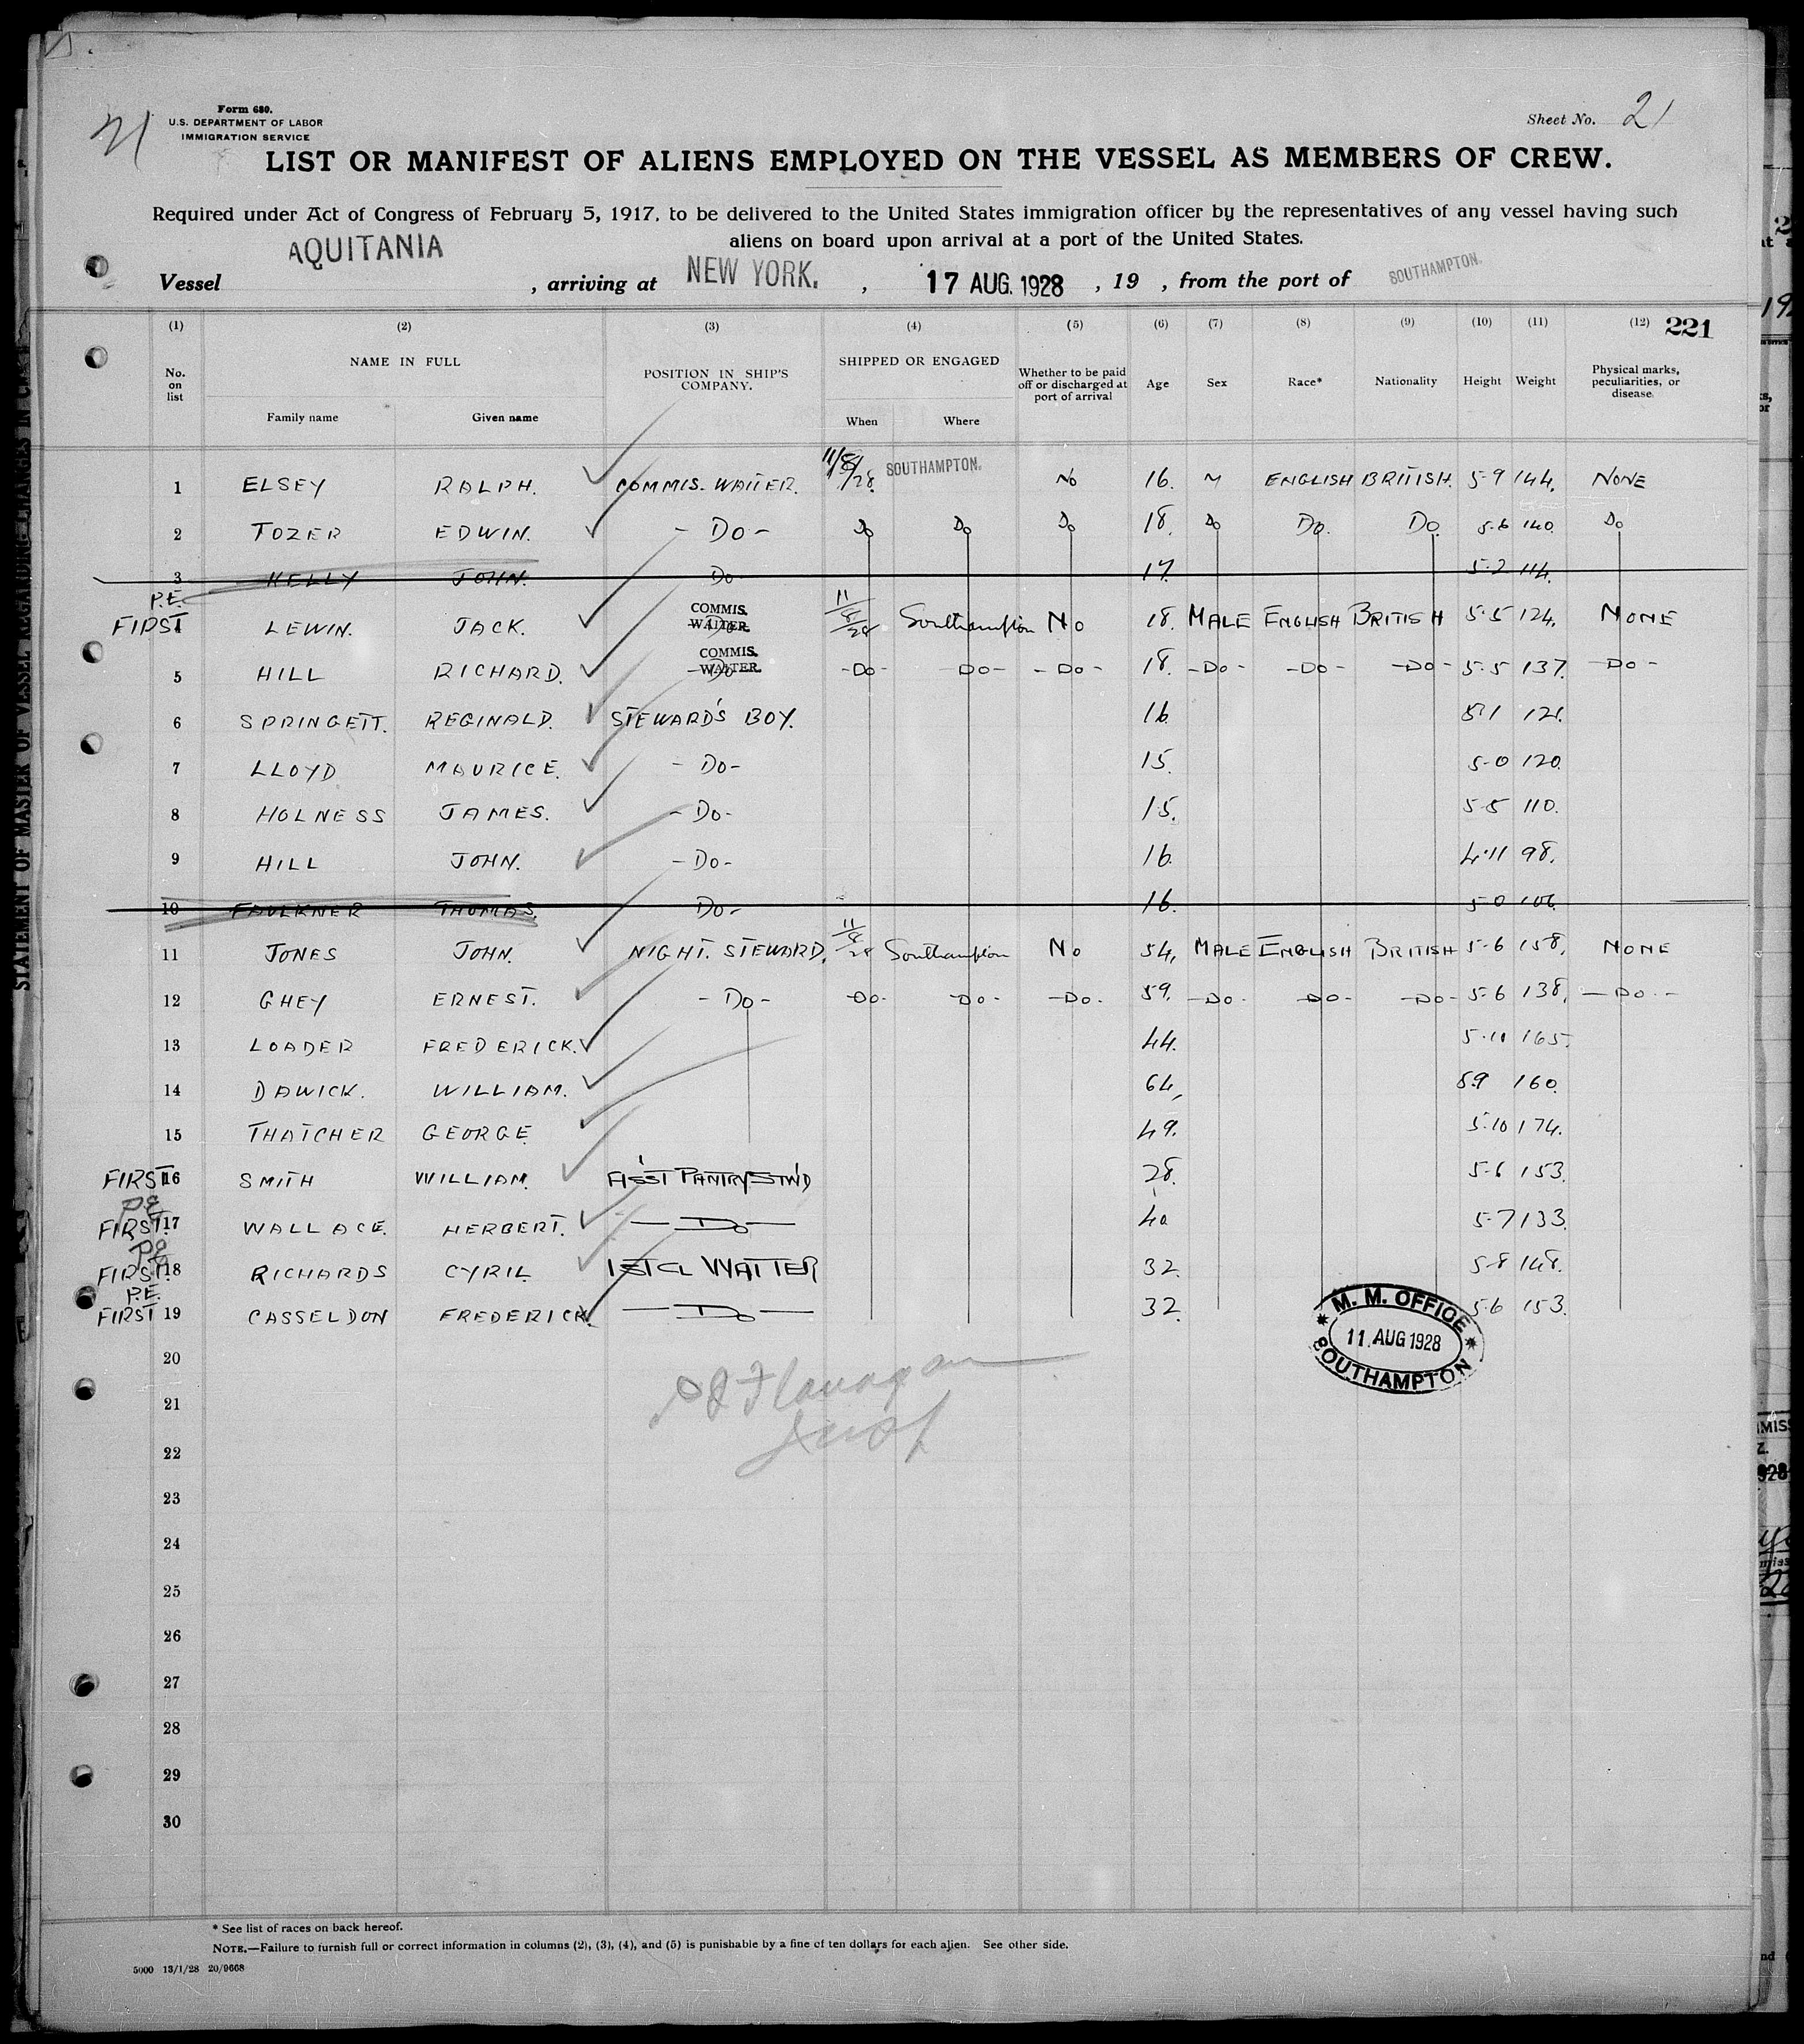 Form 680.
U.S. DEPARTMENT OF LABOR
IMMIGRATION SERVICE
21
Sheet No. 21
LIST OR MANIFEST OF ALIENS EMPLOYED ON THE VESSEL AS MEMBERS OF CREW.
Required under Act of Congress of February 5, 1917, to be delivered to the United States immigration officer by the representatives of any vessel having such
aliens on board upon arrival at a port of the United States.
Vessel AQUITANIA, arriving at NEW YORK., 17 AUG. 1928, 19 , from the port of SOUTHAMPTON.
(1) (2) (3) (4) (5) (6) (7) (8) (9) (10) (11) (12) 221
No. on list NAME IN FULL POSITION IN SHIP'S COMPANY. SHIPPED OR ENGAGED Whether to be paid off or discharged at port of arrival Age Sex Race* Nationality Height Weight Physical marks, peculiarities, or disease.
Family name Given name When Where
1 ELSEY RALPH. COMMIS. WAITER. 11/8/28. SOUTHAMPTON. No 16. M ENGLISH BRITISH. 5-9 144. NONE
2 TOZER EDWIN. - Do - Do Do Do 18. Do Do. Do. 5-6 140. Do
3 KELLY JOHN. Do 17. 5-2 114.
P.E.
FIRST 4 LEWIN. JACK. COMMIS. WAITER. 11/8/28 Southampton No 18. MALE ENGLISH BRITISH 5-5 124. NONE
5 HILL RICHARD. COMMIS. WAITER. -Do- -Do- -Do- 18. -Do- -Do- -Do- 5-5 137. -Do-
6 SPRINGETT. REGINALD. STEWARD'S BOY. 16. 5-1 121.
7 LLOYD MAURICE. - Do - 15. 5-0 120.
8 HOLNESS JAMES. - Do - 15. 5-5 110.
9 HILL JOHN. - Do - 16. 4-11 98.
10 FAULKNER THOMAS. Do - 16. 5-0 106.
11 JONES JOHN. NIGHT. STEWARD. 11/8/28 Southampton No 54, MALE ENGLISH BRITISH 5-6 158, NONE
12 GHEY ERNEST. - Do - -Do- -Do- -Do- 59. -Do- -Do- -Do- 5-6 138, -Do-
13 LOADER FREDERICK. 44. 5-11 165.
14 DAWICK. WILLIAM. 64, 5.9 160.
15 THATCHER GEORGE. 49. 5-10 174.
FIRST 16 SMITH WILLIAM. ASS'T PANTRY STW'D 28. 5-6 153.
P.E.
FIRST. 17 WALLACE. HERBERT. - Do - 40 5-7 133.
P.E.
FIRST. 18 RICHARDS CYRIL 1ST CL WAITER 32. 5-8 148.
P.E.
FIRST 19 CASSELDON FREDERICK. - Do - 32. 5-6 153.
M. M. OFFICE
11 AUG 1928
SOUTHAMPTON
20
Flanagan
21
Insp
22
23
24
25
26
27
28
29
30
* See list of races on back hereof.
NOTE.—Failure to furnish full or correct information in columns (2), (3), (4), and (5) is punishable by a fine of ten dollars for each alien. See other side.
5000 13/1/28 20/9668
STATEMENT OF MASTER OF VESSEL REGARDING CHANGES IN